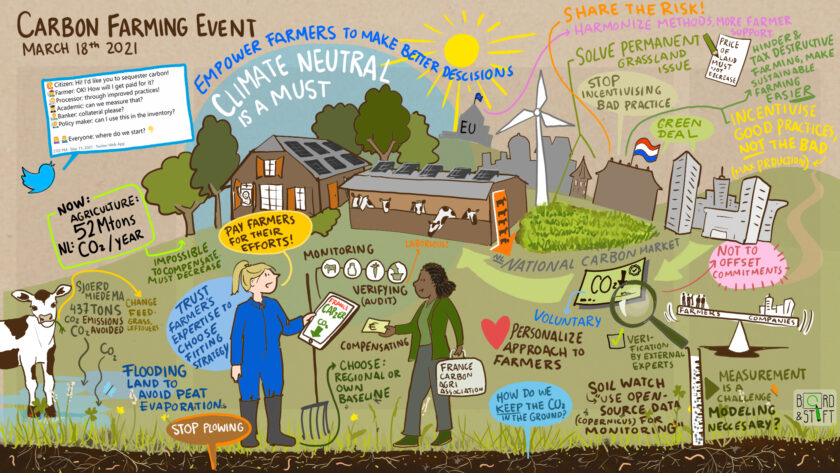 CARBON FARMING EVENT
MARCH 18TH 2021
Citizen: Hi! I'd like you to sequester carbon!
Farmer: OK! How will I get paid for it?
Processor: through improved practices!
Academic: can we measure that?
Banker: collateral please?
Policy maker: can I use this in the inventory?
Everyone: where do we start?
EMPOWER FARMERS TO MAKE BETTER DESCISIONS
CLIMATE NEUTRAL
IS A MUST
SHARE THE RISK!
HARMONIZE METHODS, MORE FARMER
SUPPORT
SOLVE PERMANENT
GRASSLAND
ISSUE
PRICE
OF
LAND
MUST
NOT
DECREASE
HINDER &
TAX DESTRUCTIVE
FARMING, MAKE
SUSTAINABLE
FARMING
EASIER
STOP
INCENTIVISING
BAD PRACTICE
EU
GREEN
DEAL
INCENTIVISE
GOOD PRACTICES,
NOT THE BAD
(MAX PRODUCTION)
NOW:
AGRICULTURE:
52 Mtons
NL: CO2/YEAR
IMPOSSIBLE
TO COMPENSATE
MUST DECREASE
PAY FARMERS
FOR THEIR
EFFORTS!
MONITORING
VERIFYING
(AUDIT)
LABORIOUS!
COMPENSATING
CHOOSE:
REGIONAL OR
OWN
BASELINE
FRANCE
CARBON
AGRI
ASSOCIATION
NL NATIONAL CARBON MARKET
CO2
VOLUNTARY
NOT TO
OFFSET
COMMITMENTS
FARMERS
COMPANIES
PERSONALIZE
APPROACH TO
FARMERS
VERI-
FICATION
BY EXTERNAL
EXPERTS
SJOERD
MIEDEMA
437 TONS
CO2 EMISSIONS
AVOIDED
CO2
CO2
CHANGE
FEED:
GRASS,
LEFTOVERS
TRUST
FARMER'S
EXPERTISE TO
CHOOSE
FITTING
STRATEGY
FLOODING
LAND TO
AVOID PEAT
EVAPORATION
STOP PLOWING
HOW DO WE
KEEP THE CO2
IN THE GROUND?
SOIL WATCH
"USE OPEN-
SOURCE DATA
(COPERNICUS) FOR
MONITORING"
MEASUREMENT
IS A
CHALLENGE
MODELING
NECESARY?